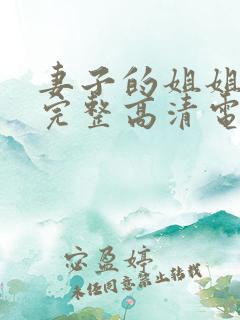 妻子的姐姐
完整高清电
宓盈婷
未经同意禁止转载